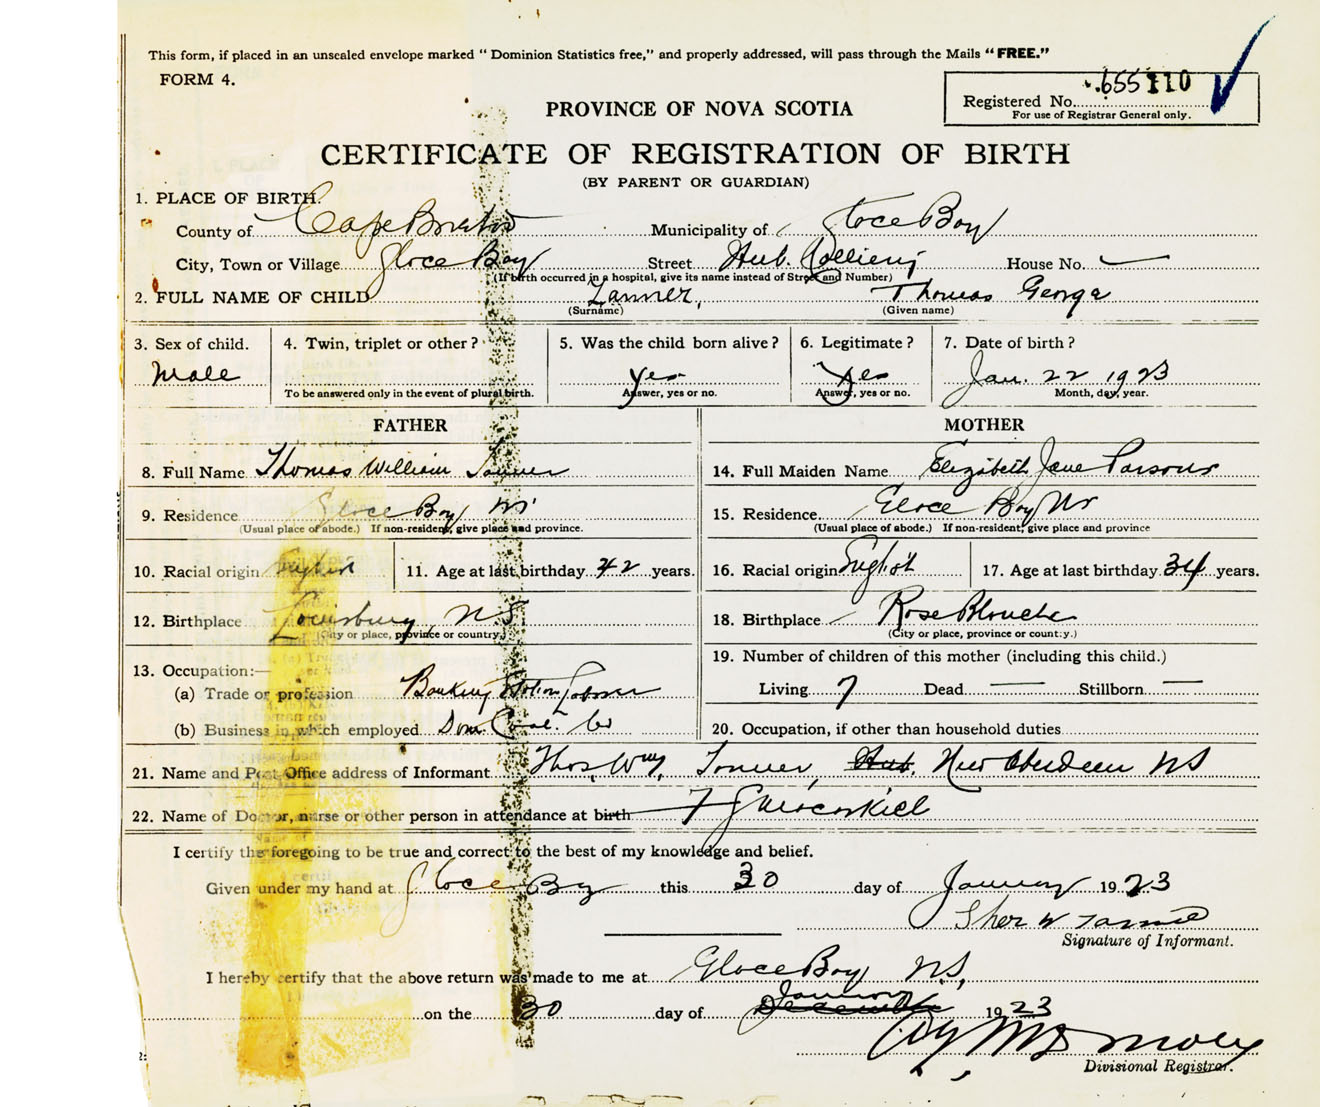 This form, if placed in an unsealed envelope marked "Dominion Statistics free," and properly addressed, will pass through the Mails "FREE."
FORM 4.
655110
Registered No.
For use of Registrar General only.
PROVINCE OF NOVA SCOTIA
CERTIFICATE OF REGISTRATION OF BIRTH
(BY PARENT OR GUARDIAN)
1. PLACE OF BIRTH.
County of Cape Breton Municipality of Glace Bay
City, Town or Village Glace Bay Street Hub. Colliery House No. —
(If birth occurred in a hospital, give its name instead of Street and Number)
2. FULL NAME OF CHILD Tanner, Thomas George
(Surname) (Given name)
3. Sex of child. 4. Twin, triplet or other? 5. Was the child born alive? 6. Legitimate? 7. Date of birth?
Male Yes Yes Jan. 22 1923
To be answered only in the event of plural birth. Answer, yes or no. Answer, yes or no. Month, day, year.
FATHER MOTHER
8. Full Name Thomas William Tanner 14. Full Maiden Name Elizabeth Jane Parsons
9. Residence Glace Bay NS 15. Residence Glace Bay NS
(Usual place of abode.) If non-resident, give place and province. (Usual place of abode.) If non-resident, give place and province
10. Racial origin English 11. Age at last birthday 42 years. 16. Racial origin English 17. Age at last birthday 34 years.
12. Birthplace Louisburg, NS 18. Birthplace Rose Blanche
(City or place, province or country.) (City or place, province or country.)
13. Occupation:— 19. Number of children of this mother (including this child.)
(a) Trade or profession Living 7 Dead — Stillborn —
(b) Business in which employed Dom. Coal. Co 20. Occupation, if other than household duties
21. Name and Post Office address of Informant Thos. Wm. Tanner, Hub. New Aberdeen NS
22. Name of Doctor, nurse or other person in attendance at birth
I certify the foregoing to be true and correct to the best of my knowledge and belief.
Given under my hand at Glace Bay this 30 day of January 1923
Thos W Tanner
Signature of Informant.
I hereby certify that the above return was made to me at Glace Bay N.S.
January
on the 30 day of December 1923
Divisional Registrar.